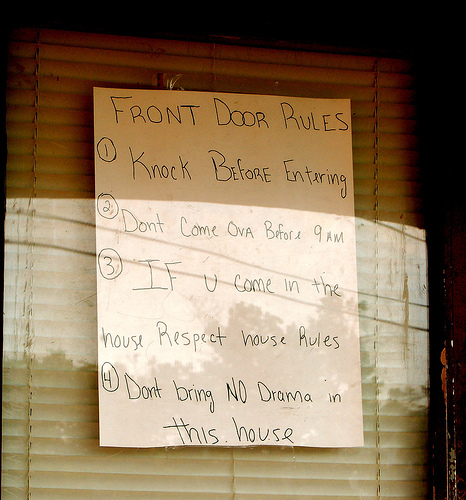 FRONT DOOR RULES
① Knock BEFORE Entering
② Dont Come OVA Before 9 AM
③ IF U come in the
house Respect house Rules
④ Dont bring NO Drama in
this. house